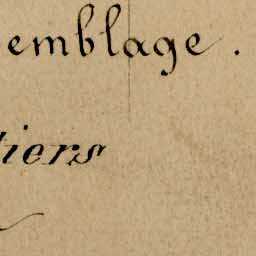 emblage.
tiers